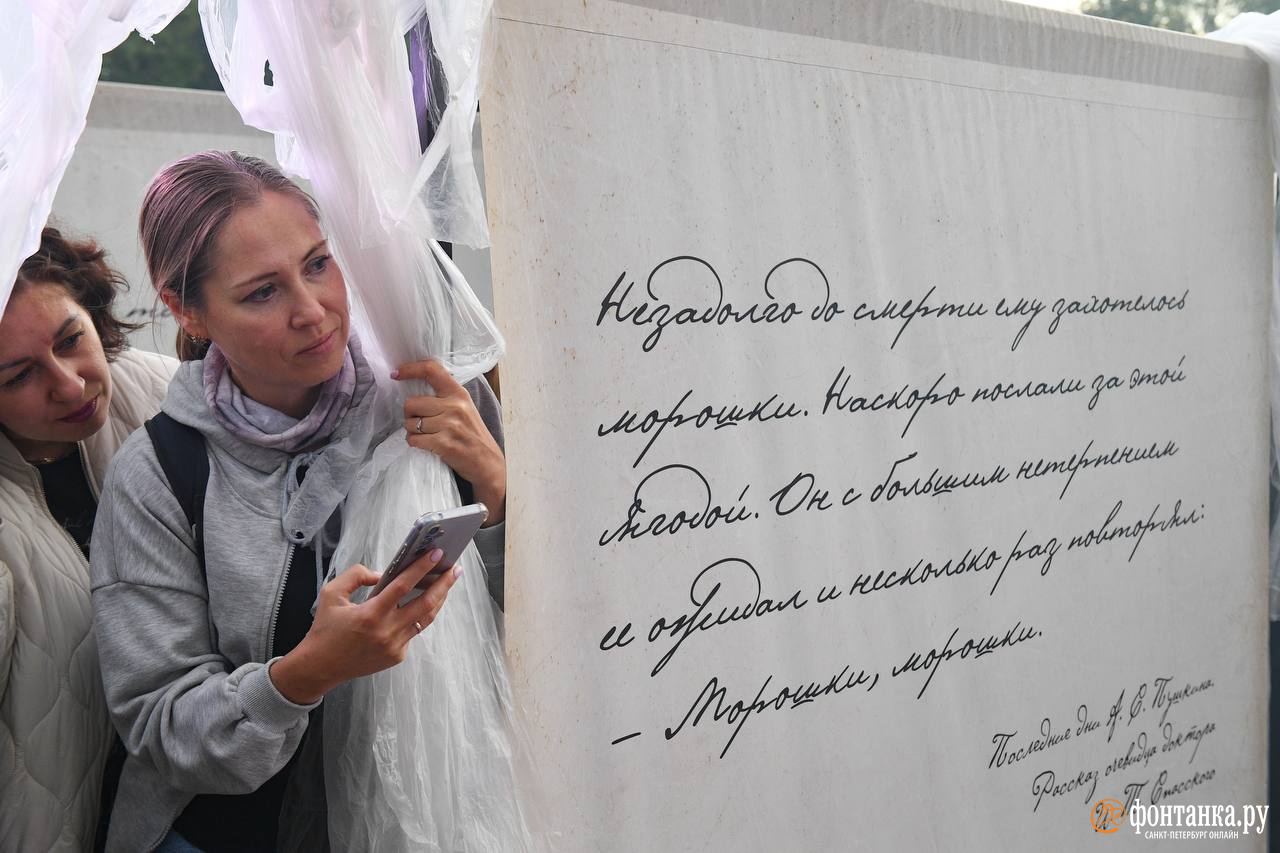 Незадолго до смерти ему захотелось
морошки. Наскоро послали за этой
ягодой. Он с большим нетерпением
ее ожидал и несколько раз повторял:
– Морошки, морошки.
Последние дни А. С. Пушкина.
Рассказ очевидца доктора
И. Т. Спасского
фонтанка.ру
САНКТ-ПЕТЕРБУРГ ОНЛАЙН